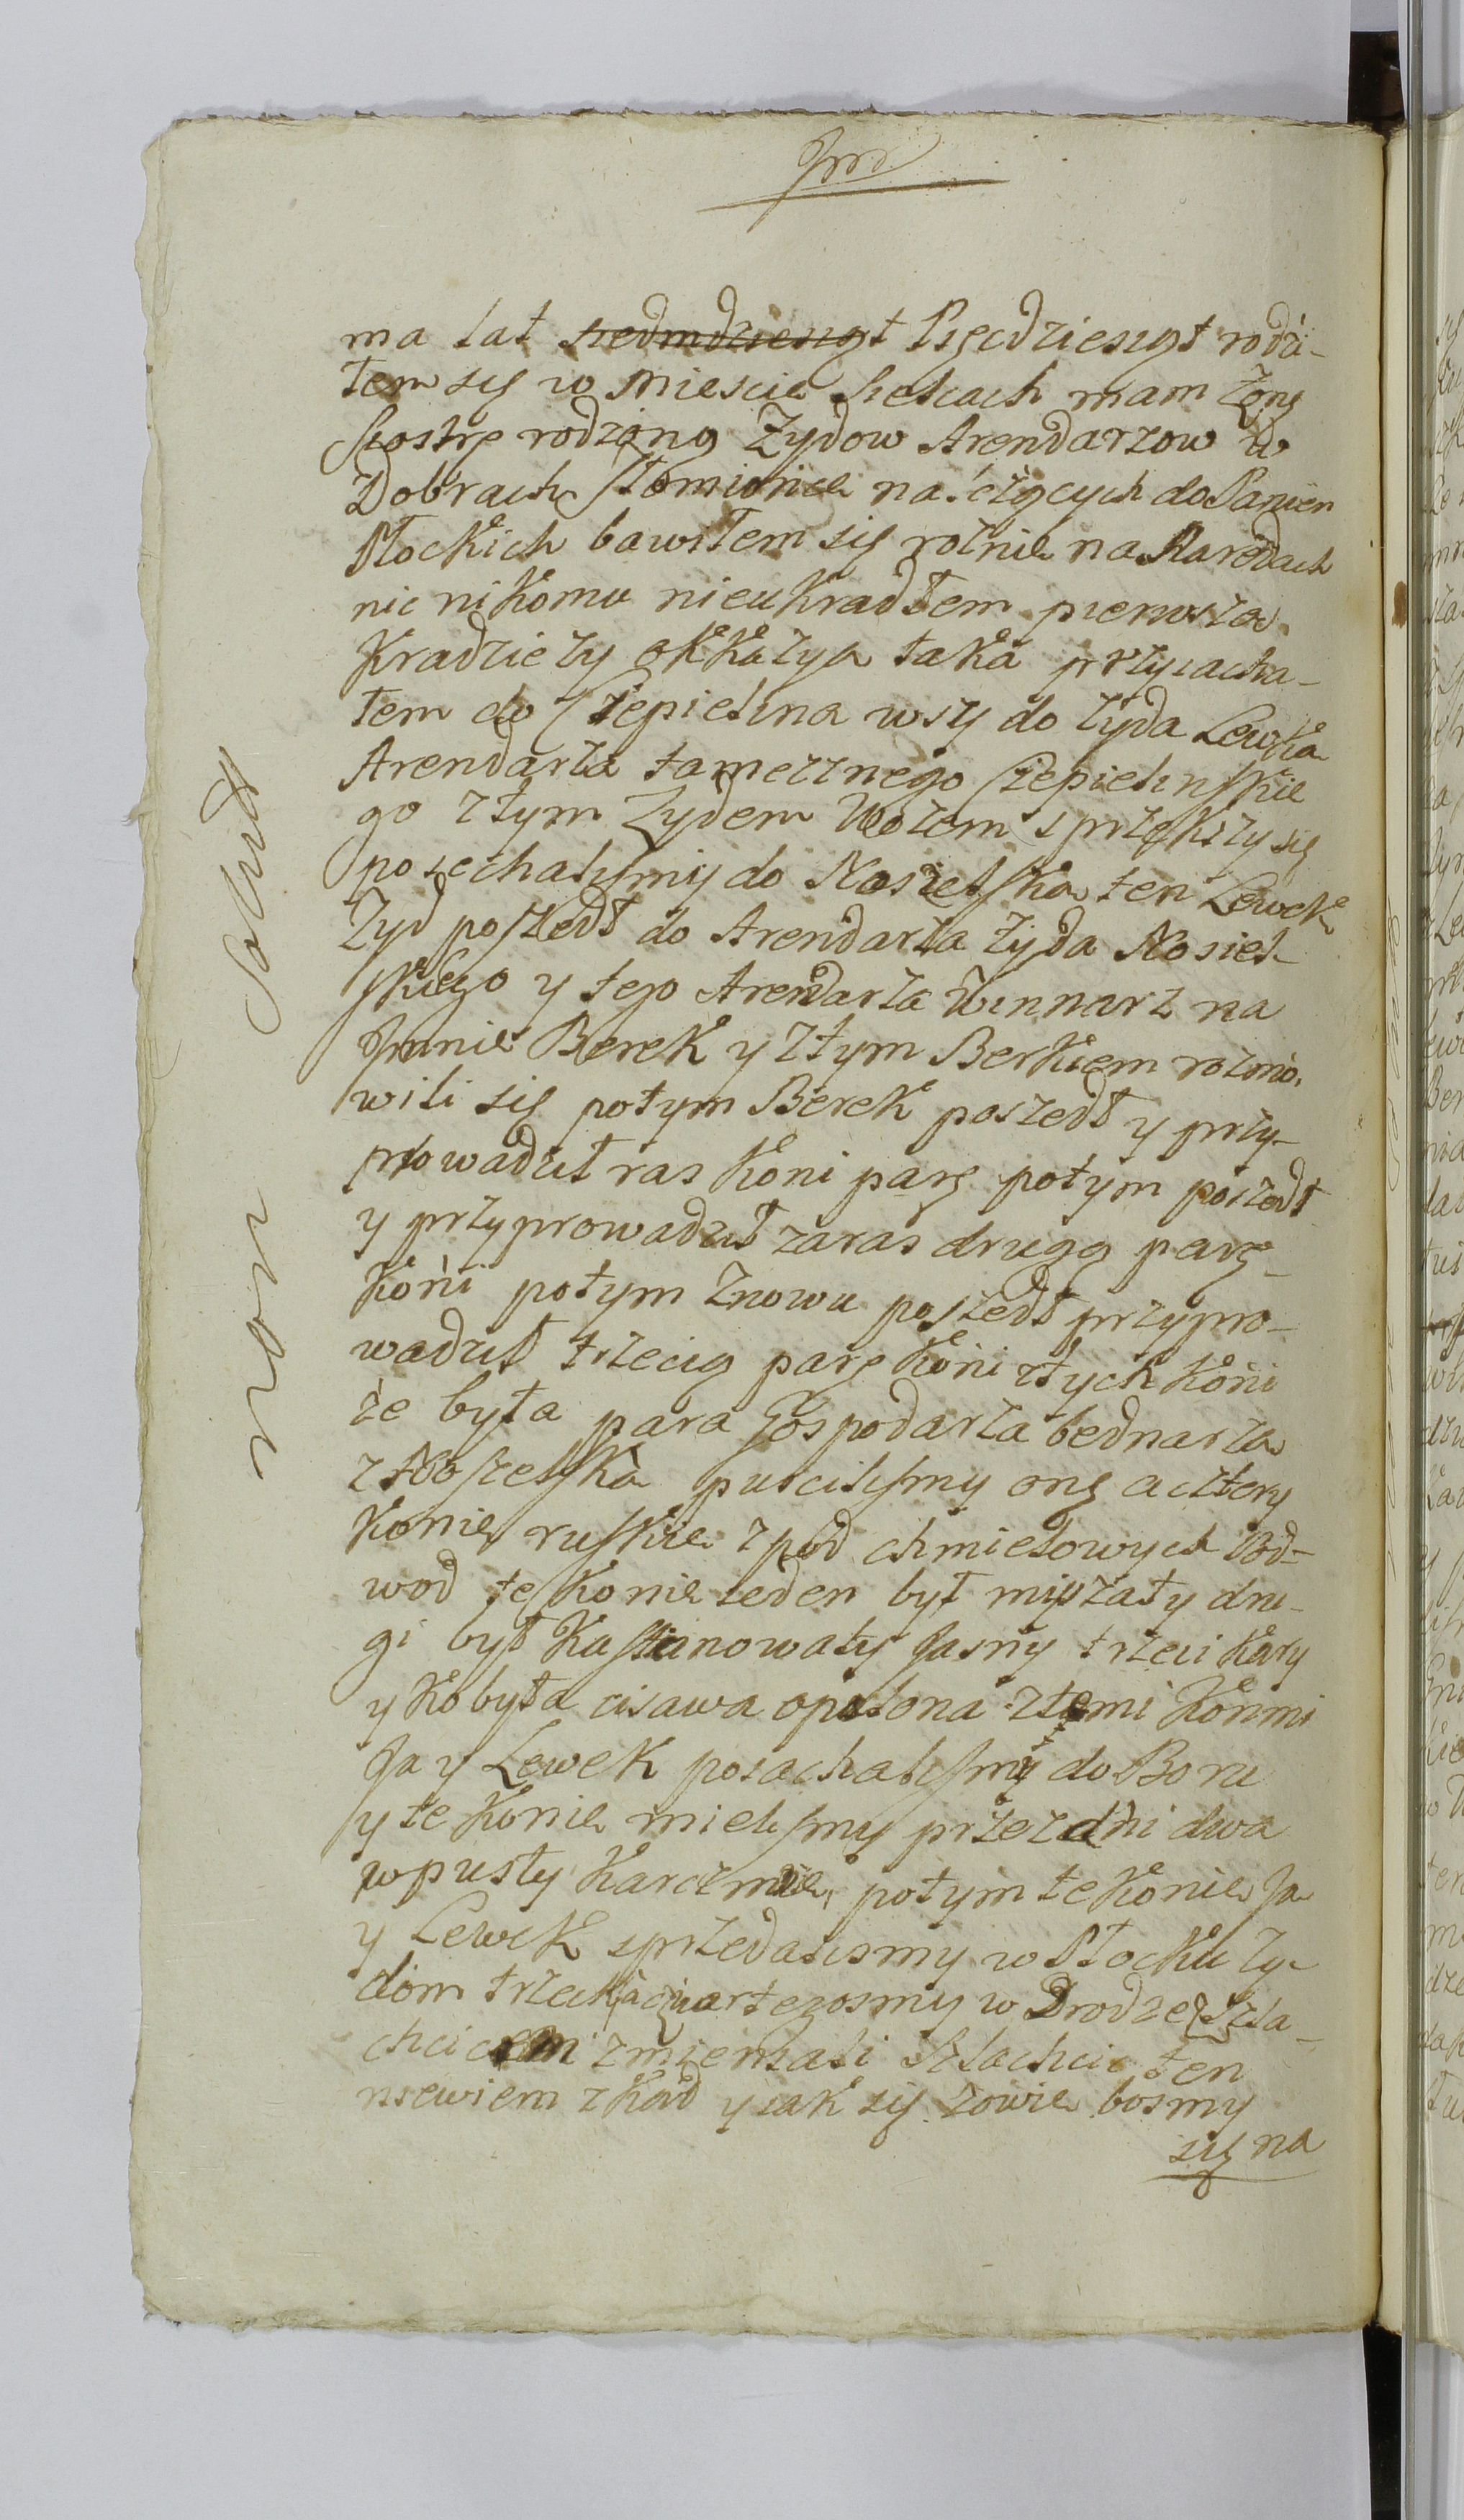 ma lat siedmdziesiąt Pięcdziesiąt rodzi-
łem się w Miescie Sielcach mam Zonę
Siostrę rodzoną Zydow Arendarzow w
Dobrach Słomionce należących do Panien
Płockich bawiłem się rolnie na
nic nikomu nieukradłem pierwsza
Kradzieży okkazya taka przyiacha-
łem do Czepielina wsy do zyda Lewka
Arendarza tamecznego Czepielinskie
go ztym Zydem Wozem sprzększy się
poiechalismy do Nosielska ten Lewek
Zyd poszedł do Arendarza żyda Nosiel
skiego y tego Arendarza Winnarz na
Jmnie Berek y ztym Berkiem rozmo,
wili się potym Berek poszedł y przy-
prowadził ras Koni parę potym poszedł
y przyprowadził zaras drugą parę
Koni potym znowu poszedł przypro-
wadził trzecią parę Koni ztych Koni
że była para Gospodarza bednarza
z Nosielska puscilismy onę a cztery
Konie ruskie zpod chmielowych Pod-
wod te Konie ieden był myszaty dru-
gi był Kasztanowaty Jasny trzeci Kary
y Kobyła cisawa opalona ztemi Konmi
Ja y Lewek poiachalismy do Boru
y te Konie mielismy przez dni dwa
wpusty Karczmie, potym te Konie Ja
y Lewek sprzedalismy w Płocku ży-
dom trzech a czwartegosmy w Drodze z Szla-
chcicem zmieniali Szlachcic ten
niewiem zkąd y iak się zowie bosmy
się na